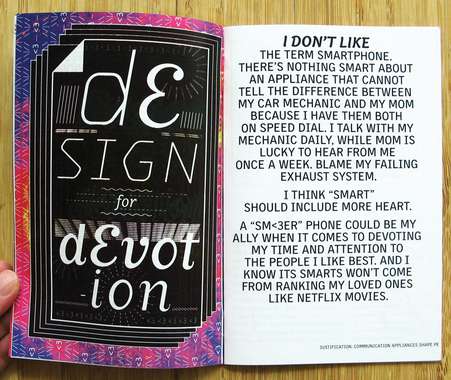 dE
SIGN
for
dEvot
ion
I DON'T LIKE
THE TERM SMARTPHONE.
THERE'S NOTHING SMART ABOUT
AN APPLIANCE THAT CANNOT
TELL THE DIFFERENCE BETWEEN
MY CAR MECHANIC AND MY MOM
BECAUSE I HAVE THEM BOTH
ON SPEED DIAL. I TALK WITH MY
MECHANIC DAILY, WHILE MOM IS
LUCKY TO HEAR FROM ME
ONCE A WEEK. BLAME MY FAILING
EXHAUST SYSTEM.
I THINK "SMART"
SHOULD INCLUDE MORE HEART.
A "SM<3ER" PHONE COULD BE MY
ALLY WHEN IT COMES TO DEVOTING
MY TIME AND ATTENTION TO
THE PEOPLE I LIKE BEST. AND I
KNOW ITS SMARTS WON'T COME
FROM RANKING MY LOVED ONES
LIKE NETFLIX MOVIES.
JUSTIFICATION: COMMUNICATION APPLIANCES SHAPE